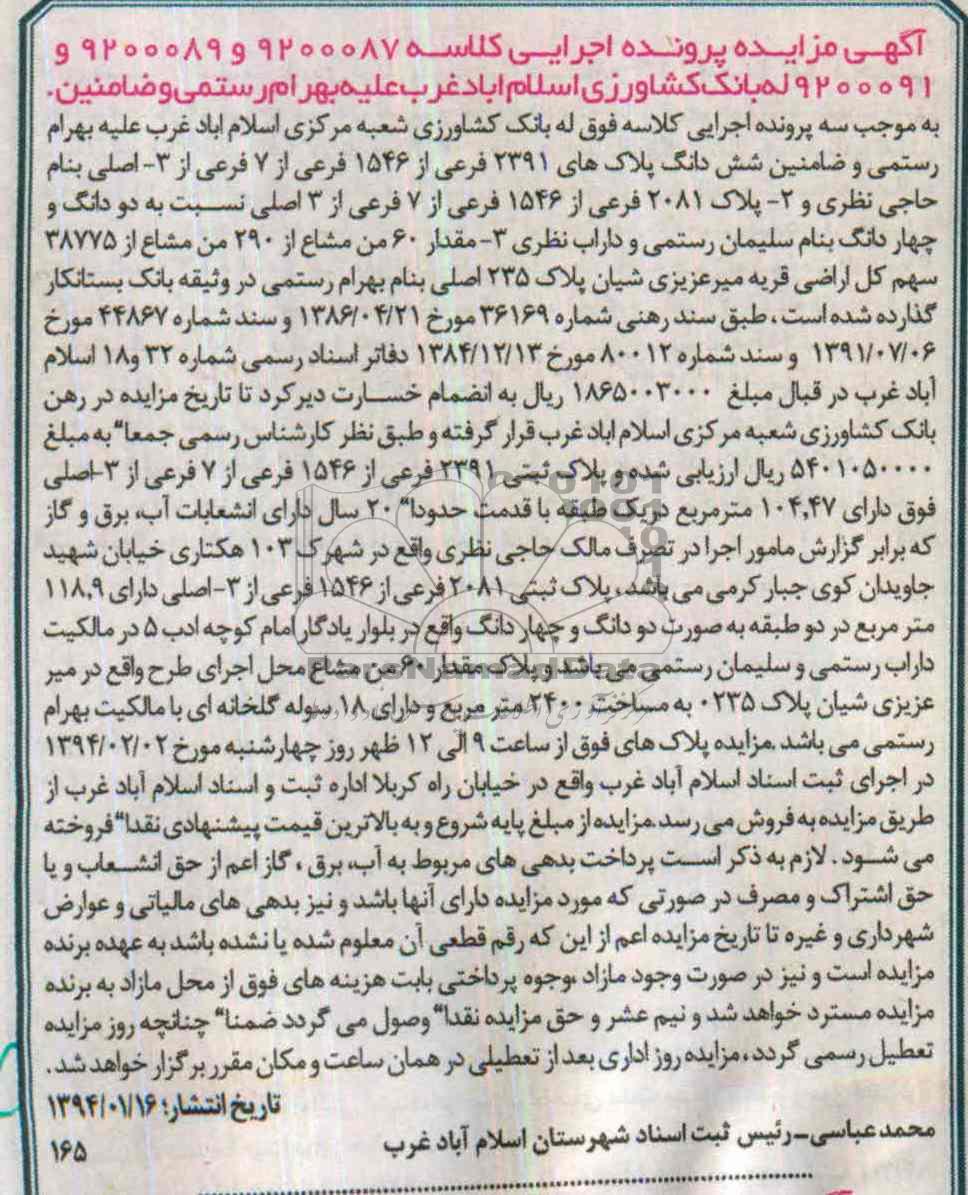 آگهی مزایده پرونده اجرایی کلاسه ۹۲۰۰۰۸۷ و ۹۲۰۰۰۸۹ و
۹۲۰۰۰۹۱ له بانک کشاورزی اسلام اباد غرب علیه بهرام رستمی و ضامنین.
به موجب سه پرونده اجرایی کلاسه فوق له بانک کشاورزی شعبه مرکزی اسلام اباد غرب علیه بهرام
رستمی و ضامنین شش دانگ پلاک های ۲۳۹۱ فرعی از ۱۵۴۶ فرعی از ۷ فرعی از ۳- اصلی بنام
حاجی نظری و ۲- پلاک ۲۰۸۱ فرعی از ۱۵۴۶ فرعی از ۷ فرعی از ۳ اصلی نسبت به دو دانگ و
چهار دانگ بنام سلیمان رستمی و داراب نظری ۳- مقدار ۶۰ من مشاع از ۲۹۰ من مشاع از ۳۸۷۷۵
سهم کل اراضی قریه میرعزیزی شیان پلاک ۲۳۵ اصلی بنام بهرام رستمی در وثیقه بانک بستانکار
گذارده شده است ، طبق سند رهنی شماره ۳۶۱۶۹ مورخ ۱۳۸۶/۰۴/۲۱ و سند شماره ۴۴۸۶۷ مورخ
۱۳۹۱/۰۷/۰۶ و سند شماره ۸۰۰۱۲ مورخ ۱۳۸۴/۱۲/۱۳ دفاتر اسناد رسمی شماره ۳۲ و۱۸ اسلام
آباد غرب در قبال مبلغ ۱۸۶۵۰۰۳۰۰۰ ریال به انضمام خسارت دیرکرد تا تاریخ مزایده در رهن
بانک کشاورزی شعبه مرکزی اسلام اباد غرب قرار گرفته و طبق نظر کارشناس رسمی جمعا" به مبلغ
۵۴۰۱۰۵۰۰۰۰ ریال ارزیابی شده و پلاک ثبتی ۲۳۹۱ فرعی از ۱۵۴۶ فرعی از ۷ فرعی از ۳-اصلی
فوق دارای ۱۰۴,۴۷ مترمربع دریک طبقه با قدمت حدودا" ۲۰ سال دارای انشعابات آب، برق و گاز
که برابر گزارش مامور اجرا در تصرف مالک حاجی نظری واقع در شهرک ۱۰۳ هکتاری خیابان شهید
جاویدان کوی جبار کرمی می باشد ، پلاک ثبتی ۲۰۸۱ فرعی از ۱۵۴۶ فرعی از ۳-اصلی دارای ۱۱۸,۹
متر مربع در دو طبقه به صورت دو دانگ و چهار دانگ واقع در بلوار یادگار امام کوچه ادب ۵ در مالکیت
داراب رستمی و سلیمان رستمی می باشد و پلاک مقدار ۶۰ من مشاع محل اجرای طرح واقع در میر
عزیزی شیان پلاک ۰۲۳۵ به مساحت ۲۴۰۰ متر مربع و دارای ۱۸ سوله گلخانه ای با مالکیت بهرام
رستمی می باشد .مزایده پلاک های فوق از ساعت ۹ الی ۱۲ ظهر روز چهارشنبه مورخ ۱۳۹۴/۰۲/۰۲
در اجرای ثبت اسناد اسلام آباد غرب واقع در خیابان راه کربلا اداره ثبت و اسناد اسلام آباد غرب از
طریق مزایده به فروش می رسد .مزایده از مبلغ پایه شروع و به بالاترین قیمت پیشنهادی نقدا" فروخته
می شود . لازم به ذکر است پرداخت بدهی های مربوط به آب، برق ، گاز اعم از حق انشعاب و یا
حق اشتراک و مصرف در صورتی که مورد مزایده دارای آنها باشد و نیز بدهی های مالیاتی و عوارض
شهرداری و غیره تا تاریخ مزایده اعم از این که رقم قطعی آن معلوم شده یا نشده باشد به عهده برنده
مزایده است و نیز در صورت وجود مازاد ،وجوه پرداختی بابت هزینه های فوق از محل مازاد به برنده
مزایده مسترد خواهد شد و نیم عشر و حق مزایده نقدا" وصول می گردد ضمنا" چنانچه روز مزایده
تعطیل رسمی گردد ، مزایده روز اداری بعد از تعطیلی در همان ساعت و مکان مقرر برگزار خواهد شد .
تاریخ انتشار: ۱۳۹۴/۰۱/۱۶
محمد عباسی-رئیس ثبت اسناد شهرستان اسلام آباد غرب
۱۶۵